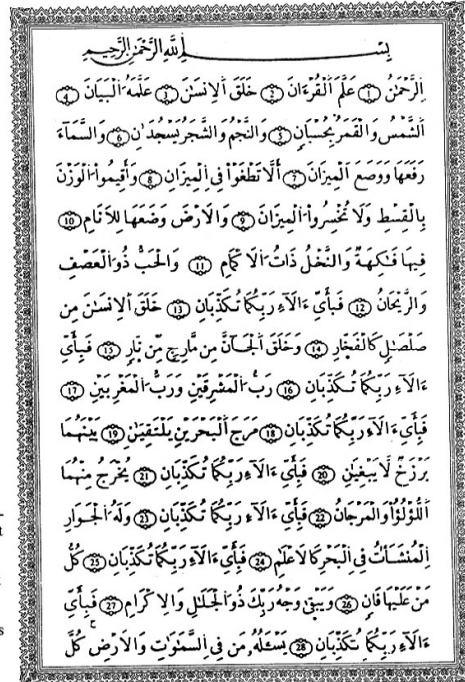 بِسْمِ اِللَّهِ اِلرَّحْمَٰنِ اِلرَّحِيمِ
اِلرَّحْمَٰنُ 1 عَلَّمَ اَلْقُرْءَانَ 2 خَلَقَ اَلِانسَٰنَ 3 عَلَّمَهُ اَلْبَيَانَ 4
اَلشَّمْسُ وَالْقَمَرُ بِحُسْبَانٖ 5 وَالنَّجْمُ وَالشَّجَرُ يَسْجُدَٰنِ 6 وَالسَّمَآءَ
رَفَعَهَا وَوَضَعَ اَلْمِيزَانَ 7 أَلَّا تَطْغَوْاْ فِي اِلْمِيزَانِ 8 وَأَقِيمُواْ اُلْوَزْنَ
بِالْقِسْطِ وَلَا تُخْسِرُواْ اُلْمِيزَانَ 9 وَالَارْضَ وَضَعَهَا لِلَانَامِ 10
فِيهَا فَٰكِهَةٌ وَالنَّخْلُ ذَاتُ اُلَاكْمَامِ 11 وَالْحَبُّ ذُو اُلْعَصْفِ
وَالرَّيْحَانُ 12 فَبِأَيِّ ءَالَآءِ رَبِّكُمَا تُكَذِّبَانِ 13 خَلَقَ اَلِانسَٰنَ مِن
صَلْصَٰلٖ كَالْفَخّارِ 14 وَخَلَقَ اَلْجَآنَّ مِن مَّارِجٖ مِّن نّارٖ 15 فَبِأَيِّ
ءَالَآءِ رَبِّكُمَا تُكَذِّبَانِ 16 رَبُّ اُلْمَشْرِقَيْنِ وَرَبُّ اُلْمَغْرِبَيْنِ 17
فَبِأَيِّ ءَالَآءِ رَبِّكُمَا تُكَذِّبَانِ 18 مَرَجَ اَلْبَحْرَيْنِ يَلْتَقِيَٰنِ 19 بَيْنَهُمَا
بَرْزَخٌ لَّا يَبْغِيَٰنِ 20 فَبِأَيِّ ءَالَآءِ رَبِّكُمَا تُكَذِّبَانِ 21 يُخْرَجُ مِنْهُمَا
اَللُّؤْلُؤُ وَالْمَرْجَانُ 22 فَبِأَيِّ ءَالَآءِ رَبِّكُمَا تُكَذِّبَانِ 23 وَلَهُ اُلْجَوَارِ
اِلْمُنشَـَٔاتُ فِي اِلْبَحْرِ كَالَاعْلَٰمِ 24 فَبِأَيِّ ءَالَآءِ رَبِّكُمَا تُكَذِّبَانِ 25 كُلُّ
مَنْ عَلَيْهَا فَانٖ 26 وَيَبْقَىٰ وَجْهُ رَبِّكَ ذُو اُلْجَلَٰلِ وَالِاكْرَامِ 27 فَبِأَيِّ
ءَالَآءِ رَبِّكُمَا تُكَذِّبَانِ 28 يَسْـَٔلُهُۥ مَن فِي اِلسَّمَٰوَٰتِ وَالَارْضِ كُلَّ